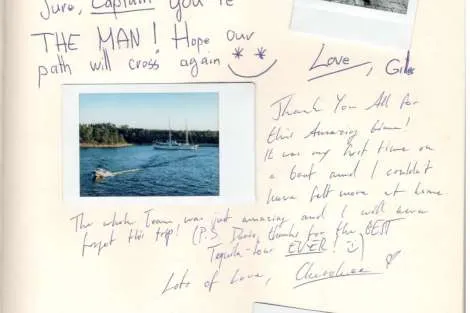 Jure, Captain You're
THE MAN! Hope our
path will cross again
Love, Giles
Thank You All for
this amazing time!
It was my first time on
a boat and I couldn't
have felt more at home.
The whole Team was just amazing and I will never
forget this trip! (P.S. thanks for the BEST
Tequila-tour EVER! :)
Lots of Love,